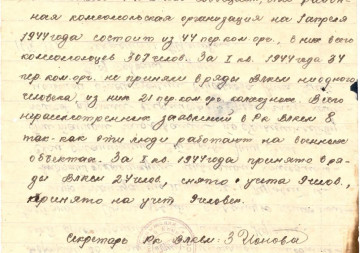 ная комсомольская организация на 1 апреля
1944 года состоит из 44 пер. ком. орг., в них всего
комсомольцев 307 челов. За I кв. 1944 года 34
пер. ком. орг. не приняли в ряды Влксм ни одного
человека, из них 21 пер. ком. орг. колхозных. Всего
нерассмотренных заявлений в Рк Влксм 8
так-как эти люди работают на военных
объектах. За I кв. 1944 года принято в ря-
ды Влксм 24 челов, снято с учета 9 челов.,
принято на учет 9 человек.
Секретарь Рк Влксм: З Ионова